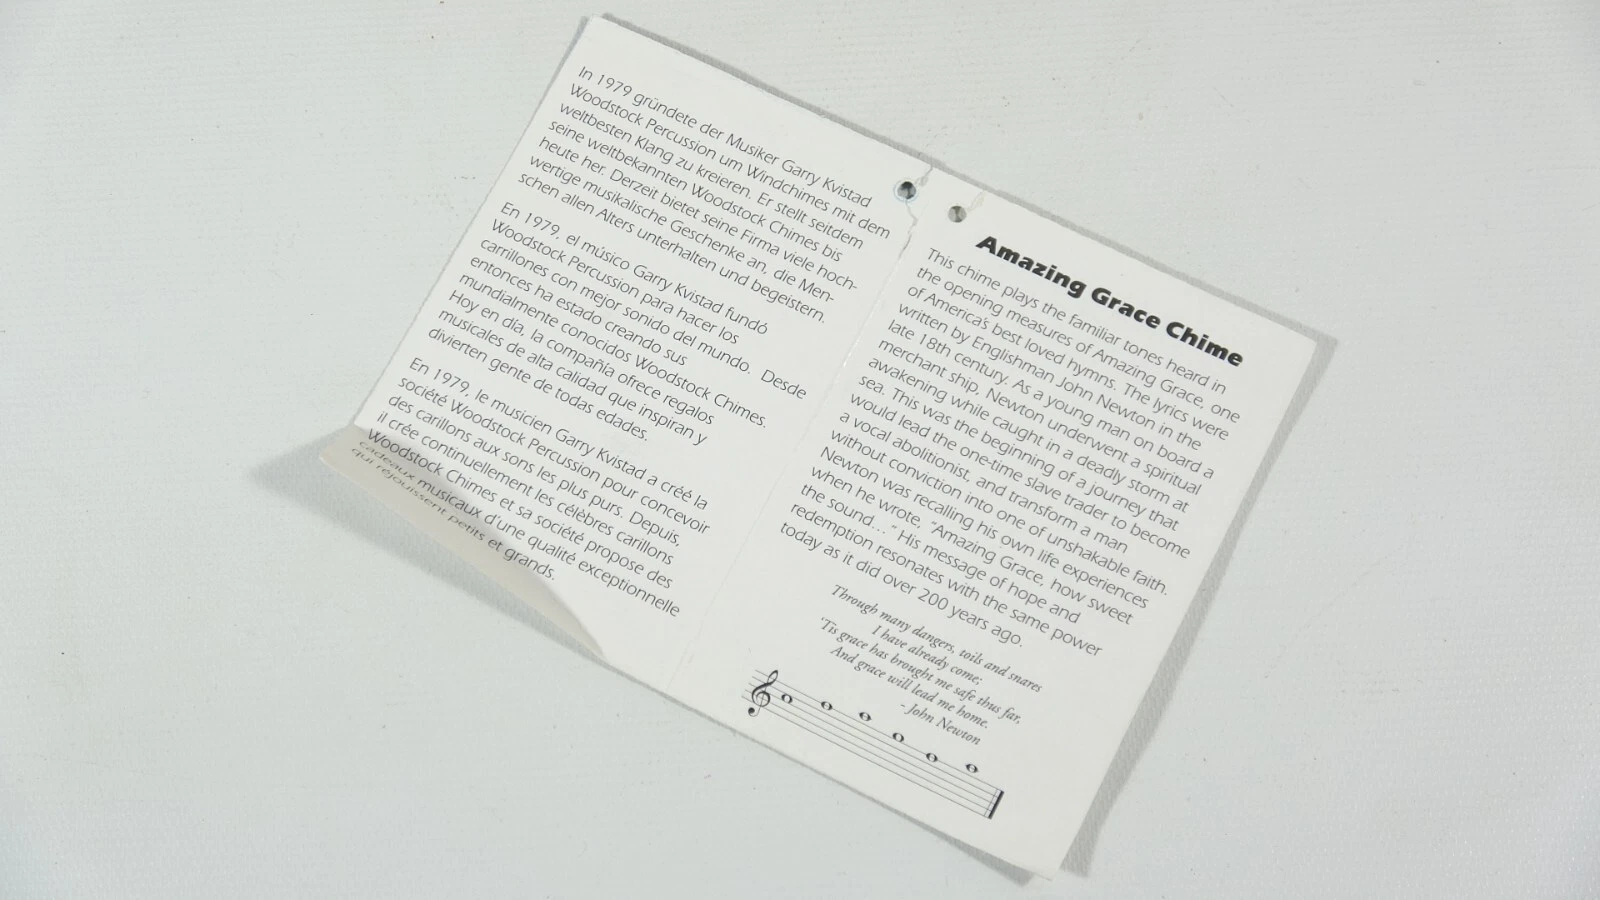 In 1979 gründete der Musiker Garry Kvistad
Woodstock Percussion um Windchimes mit dem
weltbesten Klang zu kreieren. Er stellt seitdem
seine weltbekannten Woodstock Chimes bis
heute her. Derzeit bietet seine Firma viele hoch-
wertige musikalische Geschenke an, die Men-
schen allen Alters unterhalten und begeistern.
En 1979, el músico Garry Kvistad fundó
Woodstock Percussion para hacer los
carrillones con mejor sonido del mundo. Desde
entonces ha estado creando sus
mundialmente conocidos Woodstock Chimes.
Hoy en día, la compañía ofrece regalos
musicales de alta calidad que inspiran y
divierten gente de todas edades.
En 1979, le musicien Garry Kvistad a créé la
société Woodstock Percussion pour concevoir
des carillons aux sons les plus purs. Depuis,
il crée continuellement les célèbres carillons
Woodstock Chimes et sa société propose des
cadeaux musicaux d'une qualité exceptionnelle
qui réjouissent petits et grands.
Amazing Grace Chime
This chime plays the familiar tones heard in
the opening measures of Amazing Grace, one
of America's best loved hymns. The lyrics were
written by Englishman John Newton in the
late 18th century. As a young man on board a
merchant ship, Newton underwent a spiritual
awakening while caught in a deadly storm at
sea. This was the beginning of a journey that
would lead the one-time slave trader to become
a vocal abolitionist, and transform a man
without conviction into one of unshakable faith.
Newton was recalling his own life experiences
when he wrote, "Amazing Grace, how sweet
the sound..." His message of hope and
redemption resonates with the same power
today as it did over 200 years ago.
Through many dangers, toils and snares
I have already come;
'Tis grace has brought me safe thus far,
And grace will lead me home.
- John Newton